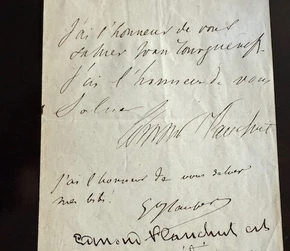 J'ai l'honneur de vous
saluer Ivan Tourgueneff.
J'ai l'honneur de vous
Salue
Edmond Plauchut
J'ai l'honneur de vous saluer
G Flaubert
Edmond Plauchut est